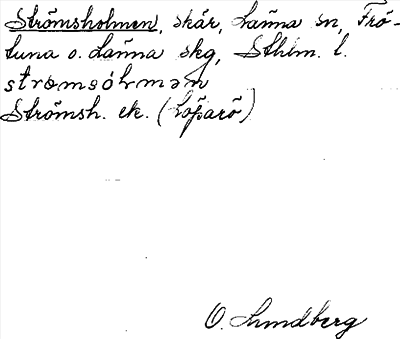 Strömsholmen, skär, Länna sn, Frö-
tuna o. Länna skg, Sthlm. l.
strömsóhmən
Strömsh. ek. (Löparö)
O. Lundberg